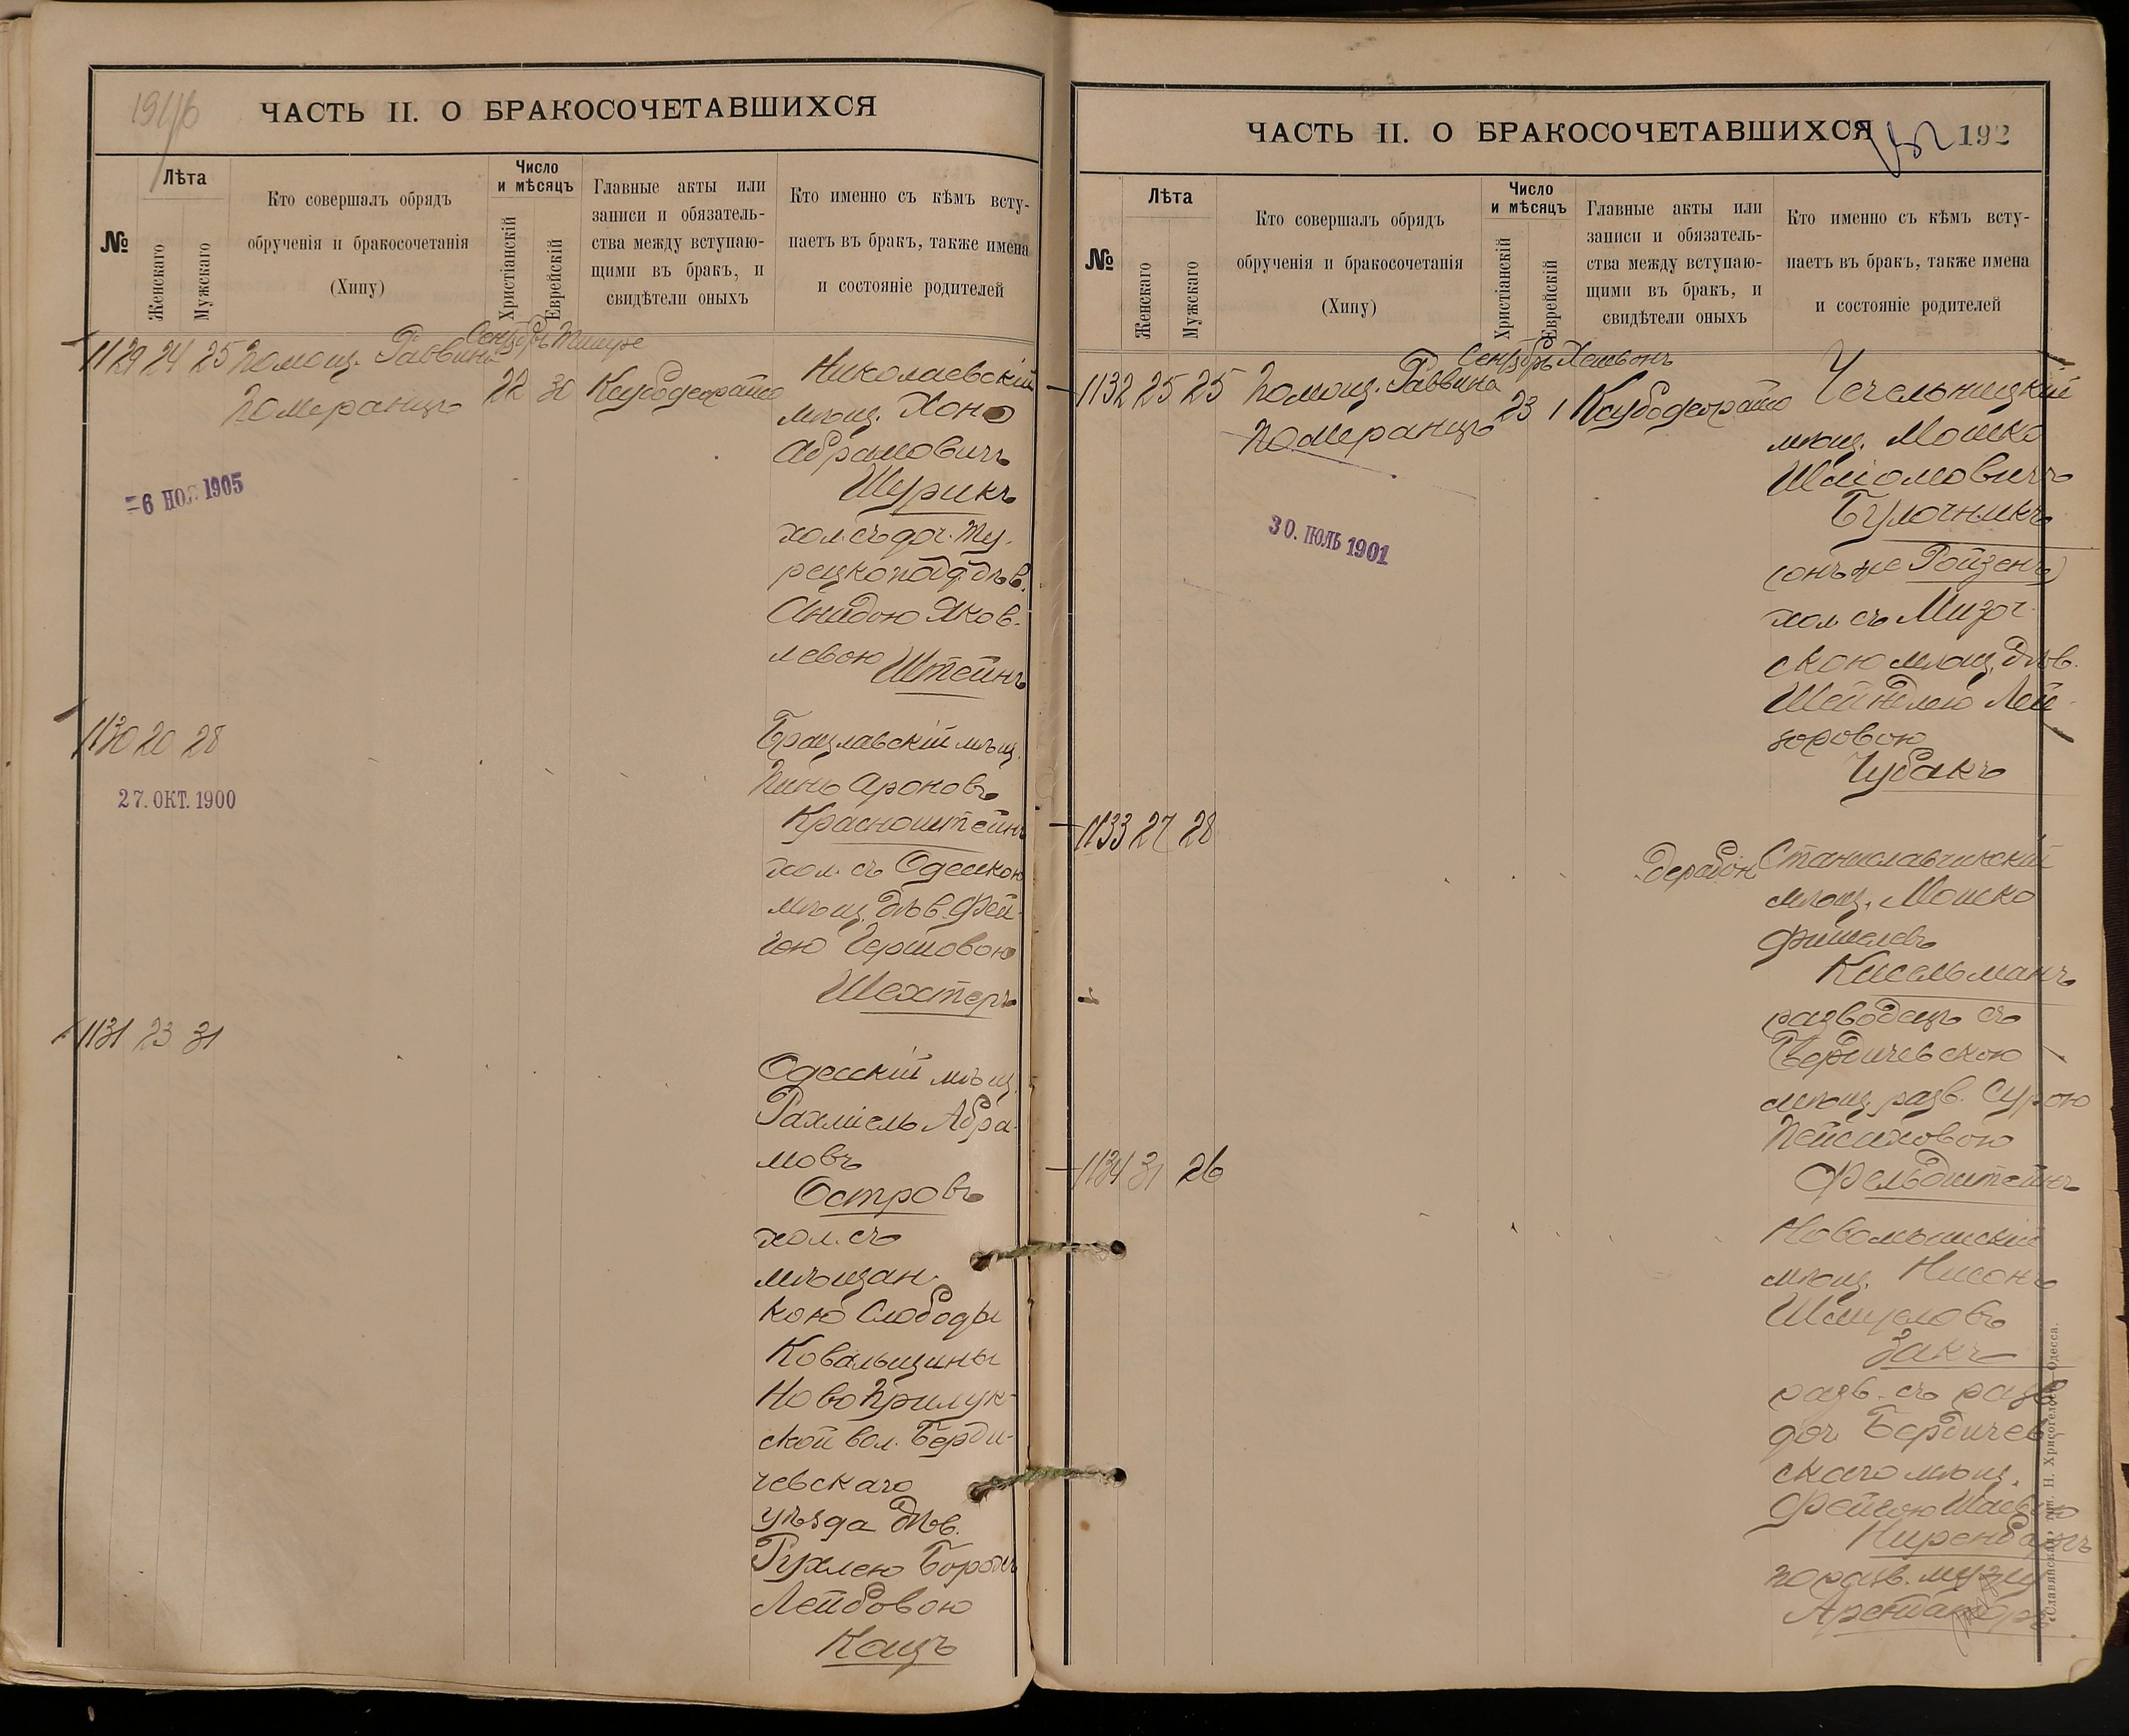 ЧАСТЬ II. О БРАКОСОЧЕТАВШИХСЯ
№
Лѣта
Женскаго
Мужскаго
Кто совершалъ обрядъ
обрученія и бракосочетанія
(Хипу)
Число
и мѣсяцъ
Христіанскій
Еврейскій
Главные акты или
записи и обязатель-
ства между вступаю-
щими въ бракъ, и
свидѣтели оныхъ
Кто именно съ кѣмъ всту-
паетъ въ бракъ, также имена
и состояніе родителей
1129 24 25 Помощ. Раввина
Померанцъ
Сентябрь Тишре
22 30
Николаевскій
мѣщ. Хоно
Абрамовичъ
Шурикъ
хол. съ доч. Ту-
рецкоподд. дѣв.
Яков-
левою Штейнъ
=6 НОЯ 1905
1130 20 28
Брацлавскій мѣщ.
Пинь Ароновъ
Красноштейнъ
хол. съ Одесскою
мѣщ. дѣв. Фей-
гою Гершовою
Шехтеръ
27. ОКТ. 1900
1131 23 31
Одесскій мѣщ.
Рахміель Абра-
мовъ
Островъ
хол. съ
мѣщан-
кою Слободы
Ковальщины
Ново Прилук-
ской вол. Берди-
чевскаго
уѣзда дѣв.
Рухлею
Лейбовою
Кацъ
ЧАСТЬ II. О БРАКОСОЧЕТАВШИХСЯ
192
№
Лѣта
Женскаго
Мужскаго
Кто совершалъ обрядъ
обрученія и бракосочетанія
(Хипу)
Число
и мѣсяцъ
Христіанскій
Еврейскій
Главные акты или
записи и обязатель-
ства между вступаю-
щими въ бракъ, и
свидѣтели оныхъ
Кто именно съ кѣмъ всту-
паетъ въ бракъ, также имена
и состояніе родителей
1132 25 25 Помощ. Раввина
Померанцъ
Сентябрь Хешвонъ
23 1
Чечельницкій
мѣщ. Мошко
Шліомовичъ
Булочникъ
(онъ же Ройзенъ)
хол. съ Мизоч-
скою мѣщ. дѣв.
Шейндлею Лей-
зоровою
Чубакъ
30. ІЮЛЬ 1901
1133 27 28
Станиславчикскій
мѣщ. Мошко
Фишелевъ
Кисельманъ
разводецъ съ
Бердичевскою
мѣщ. разв. Сурою
Пейсиховою
Фельдштейнъ
1134 31 26
мѣщ. Нисонъ
Шмулевъ
Закъ
разв. съ разв.
доч. Бердичев-
скаго мѣщ.
Фейгою
Ниренбергъ
по разв. мужу
«Славянская» тип. Н. Хрисогелосъ, Одесса.